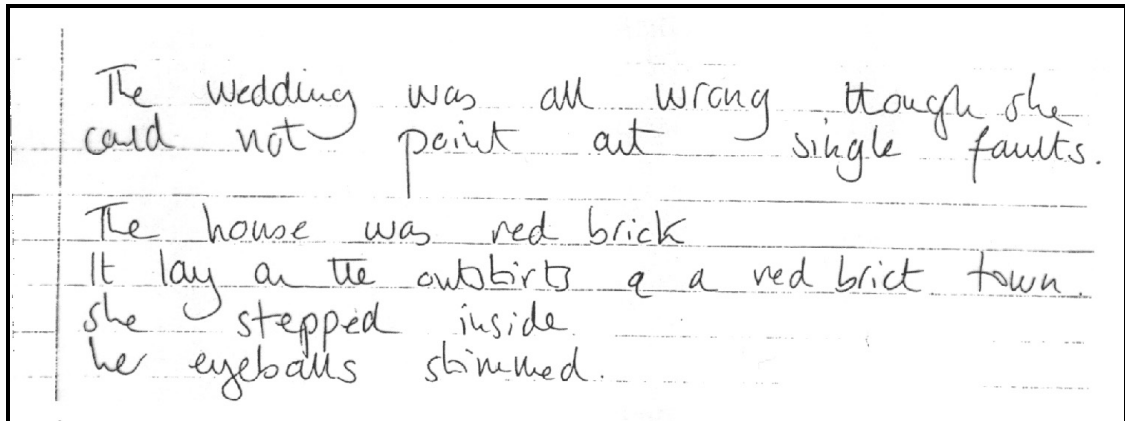 The wedding was all wrong though she
could not point out single faults.
The house was red brick
It lay on the outskirts of a red brick town.
She stepped inside.
her eyeballs skimmed.